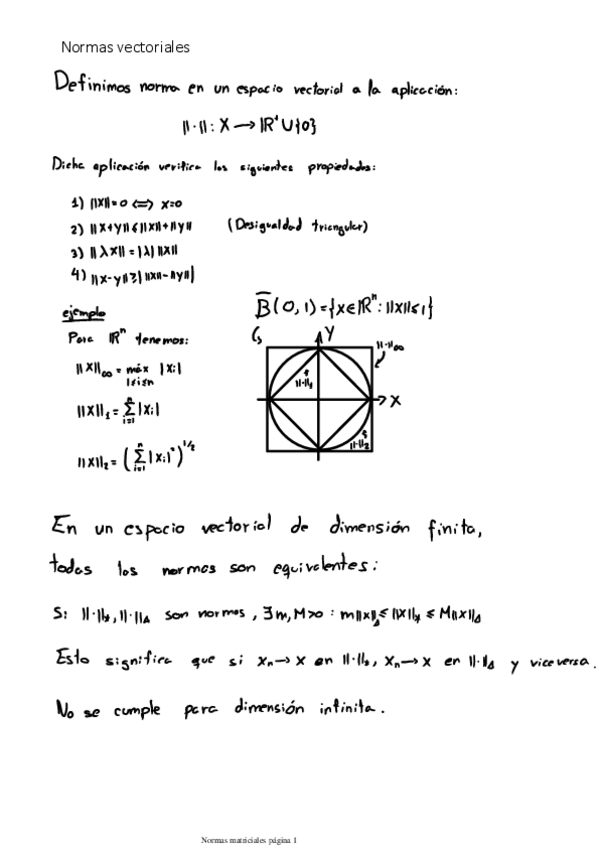 Normas vectoriales
Definimos norma en un espacio vectorial a la aplicación:
||·||: X → ℝ⁺∪{0}
Dicha aplicación verifica las siguientes propiedades:
1) ||x||=0 ⟺ x=0
2) ||x+y||≤||x||+||y|| (Desigualdad triangular)
3) ||λx||=|λ| ||x||
4) ||x-y||≥| ||x||-||y|| |
ejemplo
Para ℝⁿ tenemos:
||x||∞ = máx |xᵢ|
1≤i≤n
||x||₁ = Σ |xᵢ|
n
i=1
||x||₂ = (Σ |xᵢ|²)^1/2
n
i=1
B̅(0,1)={x∈ℝⁿ: ||x||≤1}
Y
||·||∞
||·||₁
X
||·||₂
En un espacio vectorial de dimensión finita,
todas las normas son equivalentes:
Si ||·||, ||·||Δ son normas, ∃m,M>0 : m||x||Δ ≤ ||x|| ≤ M||x||Δ
Esto significa que si xₙ→x en ||·||, xₙ→x en ||·||Δ y viceversa.
No se cumple para dimensión infinita.
Normas matriciales página 1